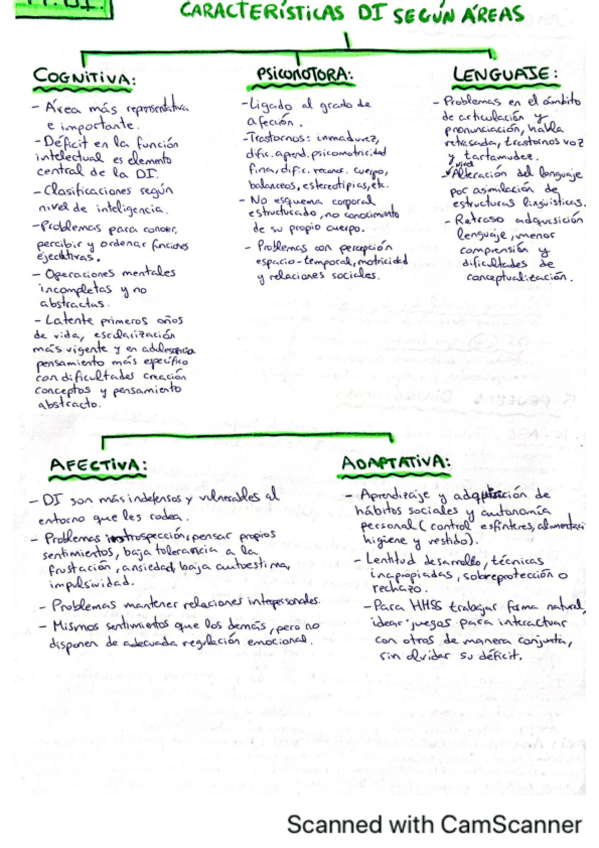 CARACTERÍSTICAS DI SEGÚN ÁREAS
COGNITIVA:
- Área más representativa
e importante.
- Déficit en la función
intelectual es elemento
central de la DI.
- Clasificaciones según
nivel de inteligencia.
- Problemas para conocer,
percibir y ordenar funciones
ejecutivas.
- Operaciones mentales
incompletas y no
abstractas.
- Latente primeros años
de vida, escolarización
más vigente y en adolescencia
pensamiento más específico
con dificultades creación
conceptos y pensamiento
abstracto.
PSICOMOTORA:
- Ligado al grado de
afección.
- Trastornos: inmadurez,
dific. aprend. psicomotricidad
fina, dific. reconoc. cuerpo,
balanceos, estereotipias, etc.
- No esquema corporal
estructurado, no conocimiento
de su propio cuerpo.
- Problemas con percepción
espacio-temporal, motricidad
y relaciones sociales.
LENGUAJE:
- Problemas en el ámbito
de articulación y
pronunciación, habla
retrasada, trastornos voz
y tartamudez.
- Alteración del lenguaje
por asimilación de
estructuras lingüísticas.
- Retraso adquisición
lenguaje, menor
comprensión y
dificultades de
conceptualización.
AFECTIVA:
- DI son más indefensos y vulnerables al
entorno que les rodea.
- Problemas introspección, pensar propios
sentimientos, baja tolerancia a la
frustración, ansiedad, baja autoestima,
impulsividad.
- Problemas mantener relaciones interpersonales.
- Mismos sentimientos que los demás, pero no
disponen de adecuada regulación emocional.
ADAPTATIVA:
- Aprendizaje y adquisición de
hábitos sociales y autonomía
personal (control esfínteres, alimentaci
higiene y vestido).
- Lentitud desarrollo, técnicas
inapropiadas, sobreprotección o
rechazo.
- Para HHSS trabajar forma natural,
idear juegos para interactuar
con otros de manera conjunta,
sin olvidar su déficit.
Scanned with CamScanner